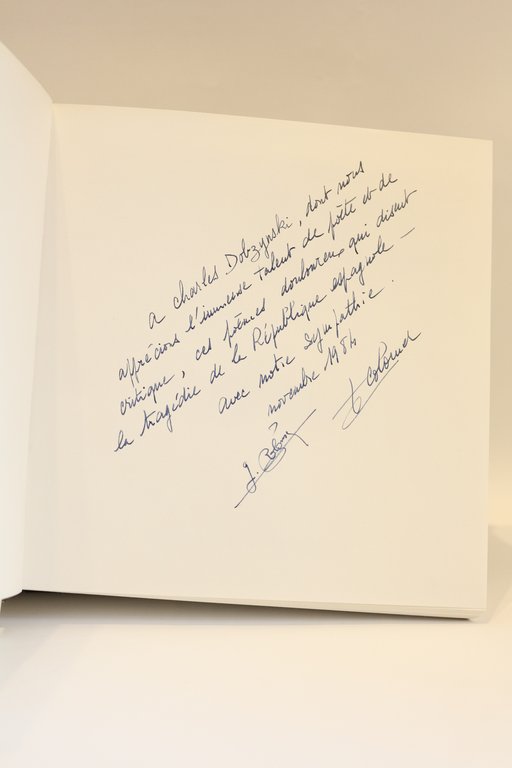 a Charles Dobzynski, dont nous
apprécions l'immense talent de poète et de
critique, ces poèmes douloureux qui disent
la tragédie de la République espagnole –
avec notre sympathie.
novembre 1984
J.
Colomer